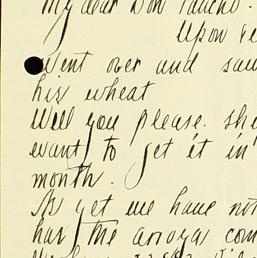 My dear Don Pancho.
Upon
Went over and saw
his wheat
Will you please. she
want to get it in
month.
As yet we have not
has the arroya com